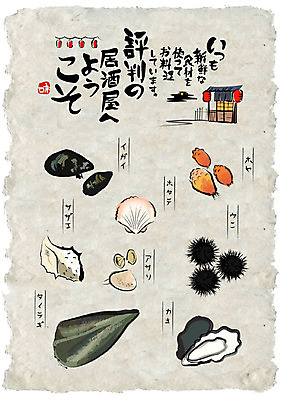 いつも
新鮮な
食材を
使って
お料理
しています。
評判の
居酒屋へ
ようこそ
ホヤ
イガイ
ホタテ
ウニ
サザエ
アサリ
タイラギ
カキ